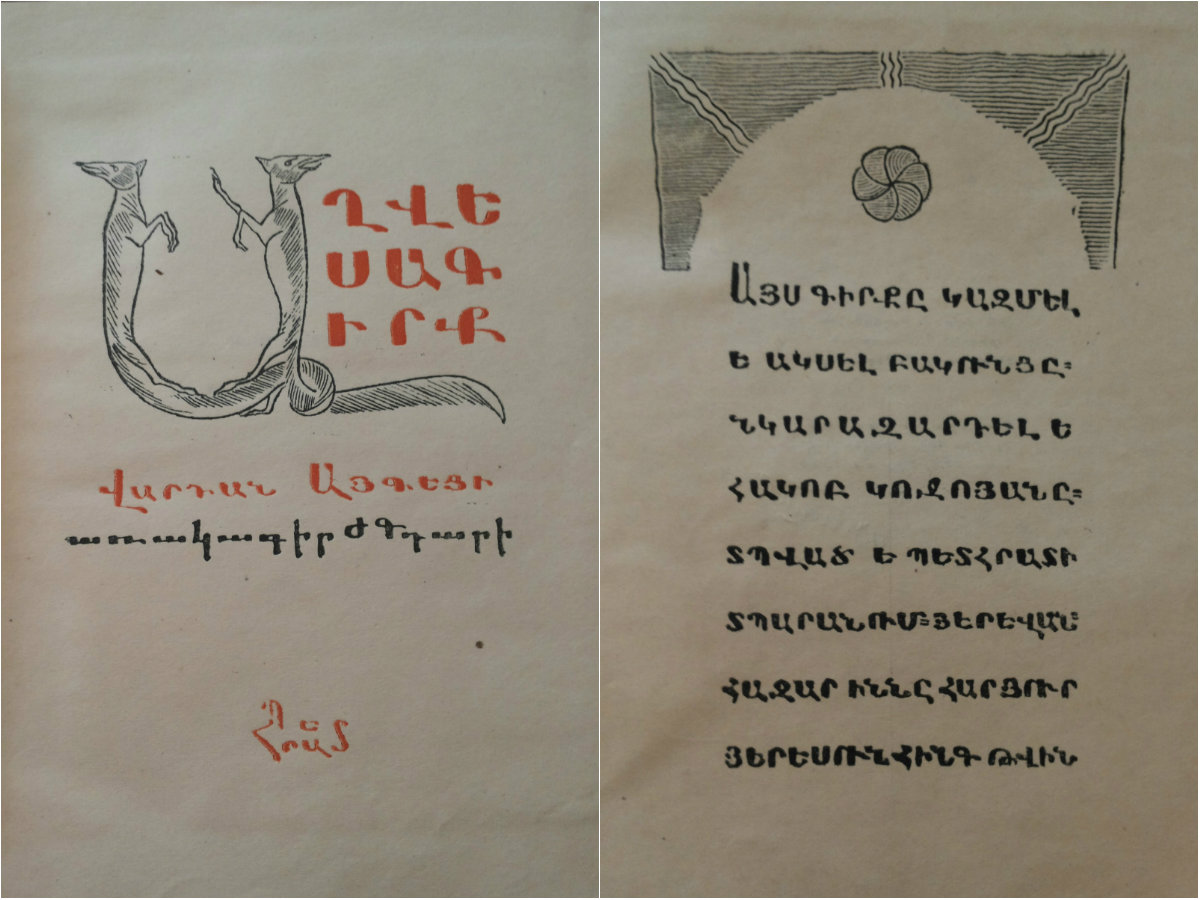 ԱՂՎԵ
ՍԱԳ
ԻՐՔ
ՎԱՐԴԱՆ ԱՅԳԵՑԻ
առակագիր ԺԳ դարի
ՊԵՏՀՐԱՏ
ԱՅՍ ԳԻՐՔԸ ԿԱԶՄԵԼ
Ե ԱԿՍԵԼ ԲԱԿՈՒՆՑԸ։
ՆԿԱՐԱԶԱՐԴԵԼ Ե
ՀԱԿՈԲ ԿՈՋՈՅԱՆԸ։
ՏՊՎԱԾ Ե ՊԵՏՀՐԱՏԻ
ՏՊԱՐԱՆՈՒՄ։ ՅԵՐԵՎԱՆ։
ՀԱԶԱՐ ԻՆՆԸ ՀԱՐՅՈՒՐ
ՅԵՐԵՍՈՒՆՀԻՆԳ ԹՎԻՆ